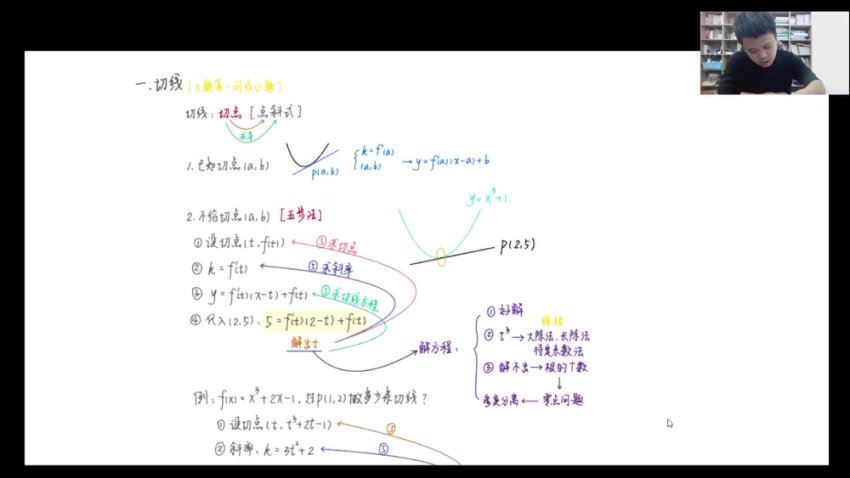 一、切线 [大题第一问或小题]
切线：切点 [点斜式]
求导
1. 已知切点(a,b)
P(a,b)
k=f'(a)
(a,b)
→ y=f'(a)(x-a)+b
y=x³+1
2. 不给切点(a,b) [五步法]
P(2,5)
① 设切点(t,f(t)) ⑤求切点
② k=f'(t) ⑤求斜率
③ y=f'(t)(x-t)+f(t) ⑤求切线方程
④ 代入(2,5)：5=f'(t)(2-t)+f(t)
解出t
解方程：
① 好解
② t³→大除法、长除法
待定系数法
③ 解不出→根的个数
↓
参变分离 ← 零点问题
例：f(x)=x³+2x-1，过P(1,2)做多少条切线？
① 设切点(t,t³+2t-1) ⑤
② 斜率，k=3t²+2 ⑤